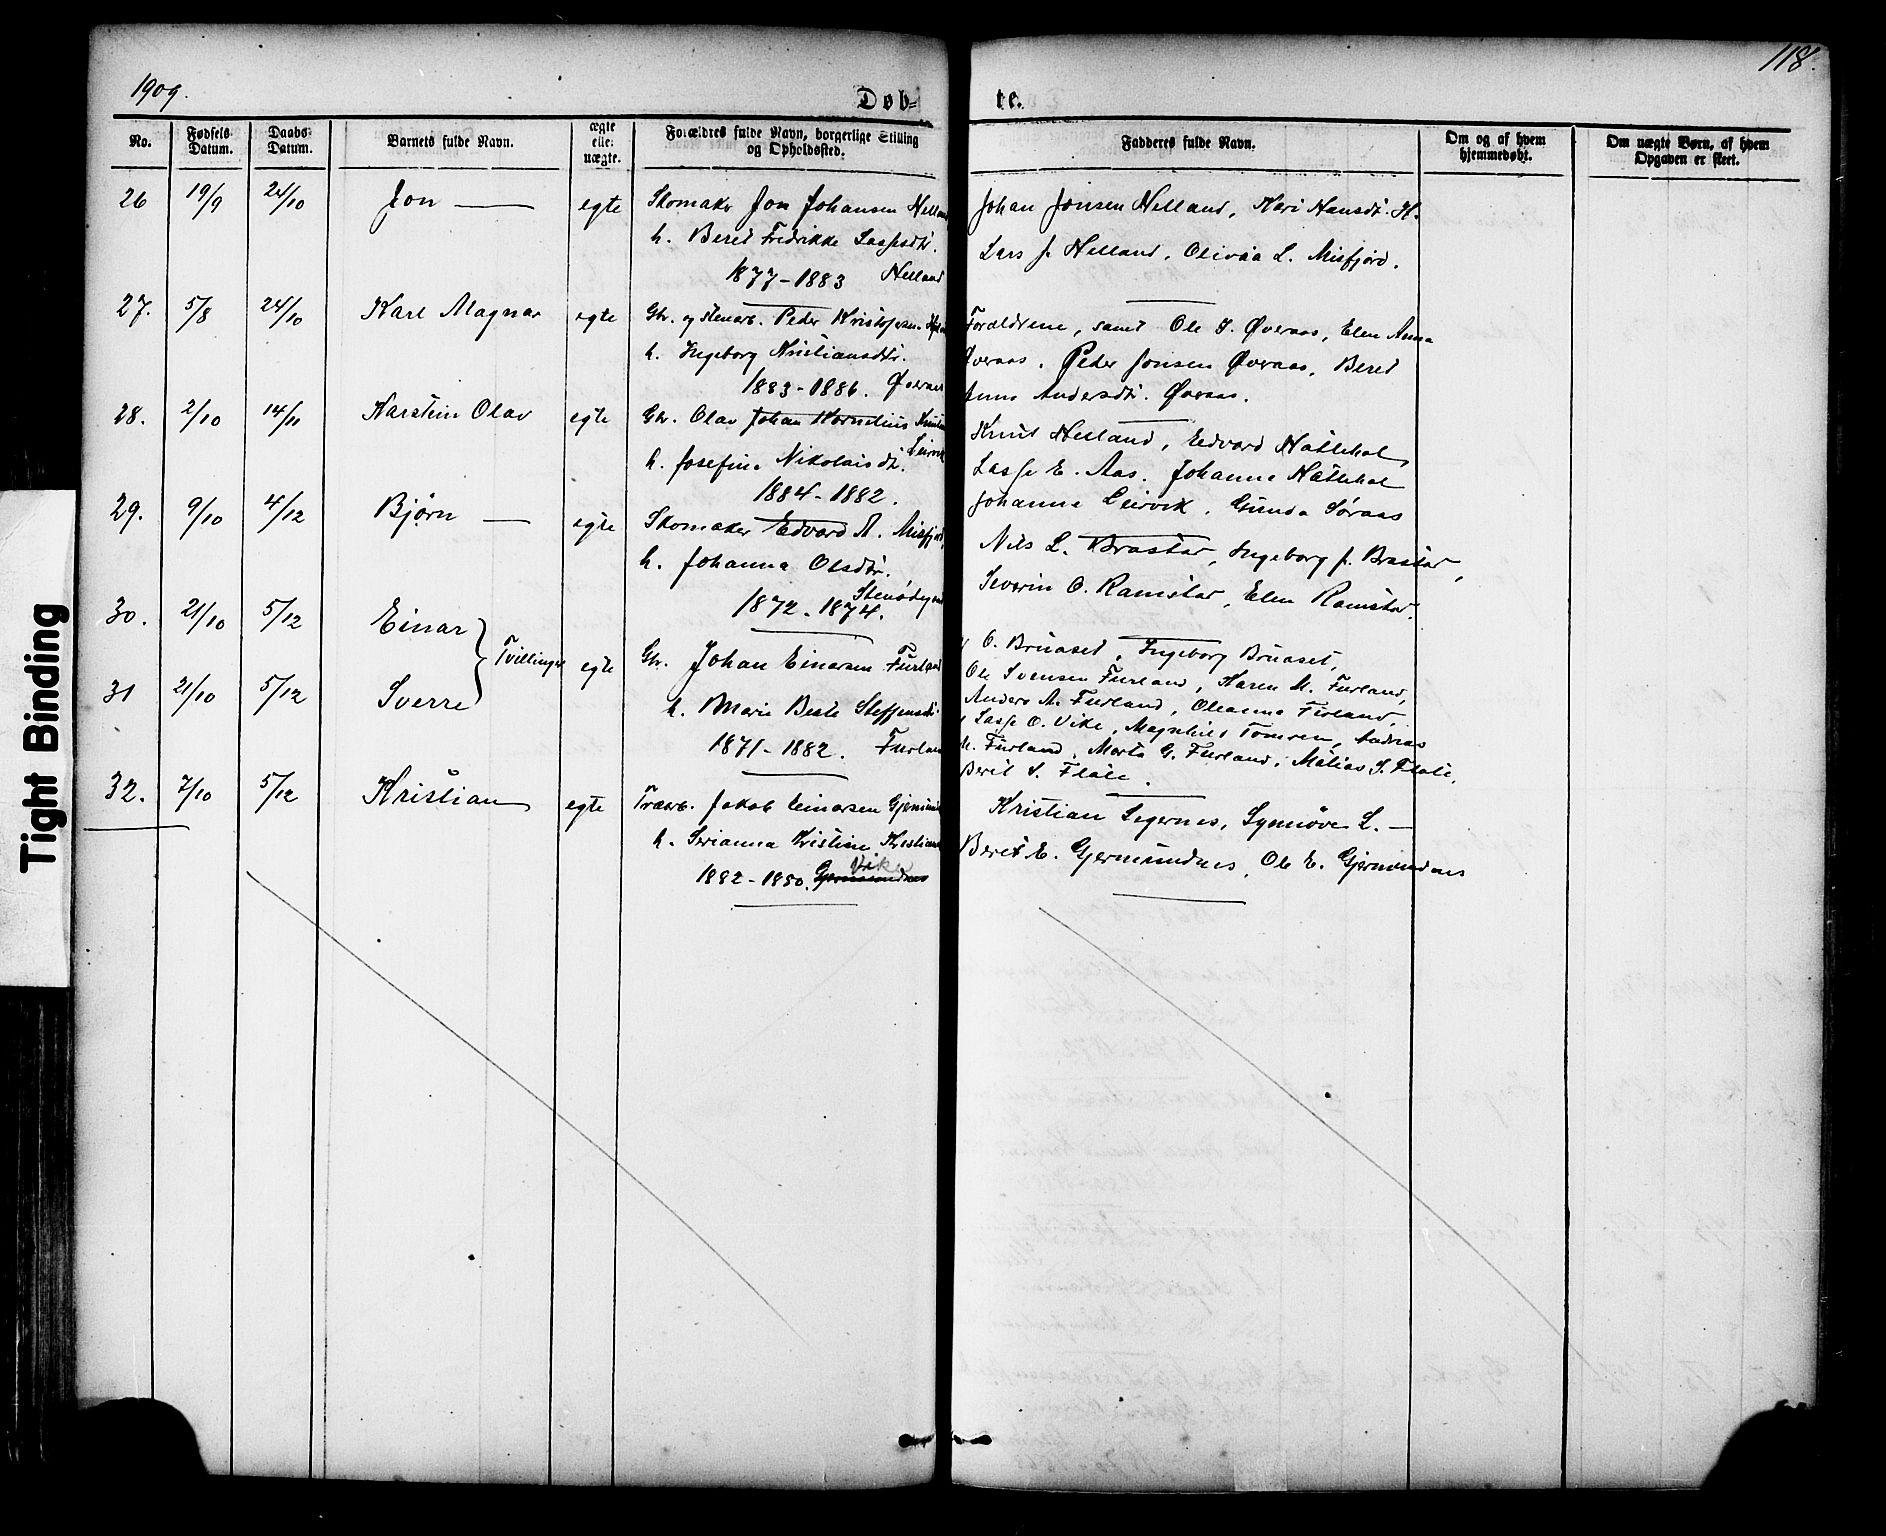 1909.
118.
Døb=
te.
No.
Fødsels Datum.
Daabs Datum.
Barnets fulde Navn.
ægte eller uægte.
Forældres fulde Navn, borgerlige Stilling og Opholdssted.
Fadderes fulde Navn.
Om og af hvem hjemmedøbt.
Om uægte Børn, af hvem Opgaven er skeet.
26 19/9 24/10 Jon — egte Skomaker Jon Johansen Helland
h. Beret Fredrikke Lassesdtr.
1877-1883 Helland
Johan Jonsen Helland, Kari Hansdt. H.
Lars J. Helland, Olivia L. Misfjord.
27. 5/8 24/10 Karl Magnar egte Gbr. og stenarb. Peder Kristofersen
h. Ingeborg Kristiansdtr.
1883-1886. Øveraas
Forældrene, samt Ole J. Øveraas, Elen Anna
Øveraas, Peder Jonsen Øveraas, Beret
Anna Andersdt. Øveraas.
28. 2/10 14/11 Karstein Olav egte Gbr. Olav Johan Kornelius
h. Josefine Nikolaisdtr. Leirvik
1884-1882.
Knut Helland, Edvard Hattehol,
Lasse E. Aas. Johanne Hattehol
Johanna Leirvik, Gunda Søraas
29. 9/10 4/12 Bjørn — egte Skomaker Edvard A. Misfjord,
h. Johanna Olsdtr.
1872-1874.
Nils L. Brastad, Ingeborg J. Brastad,
Severin O. Ramstad, Elen Ramstad.
30. 21/10 5/12 Einar
31 21/10 5/12 Sverre
Tvillinger egte Gbr. Johan Einarsen Furland
h. Marie Beate Steffensdt.
1871-1882. Furland
O. Bruaset, Ingeborg Bruaset,
Ole Svensen Furland, Karen M. Furland,
Anders A. Furland, Oleanna Furland,
Lasse O. Vike, Magnhild Tomren, Andreas
M. Furland, Marta G. Furland, Matias S. Flate,
Berit S. Flate.
32. 7/10 5/12 Kristian egte Træarb. Jakob Einarsen Gjermundnes
h. Serianna Kristine
1882-1880. Gjermundnes Vike
Kristian Legernes, Synnøve L. —
Berit E. Gjermundnes, Ole E. Gjermundnes
Tight Binding